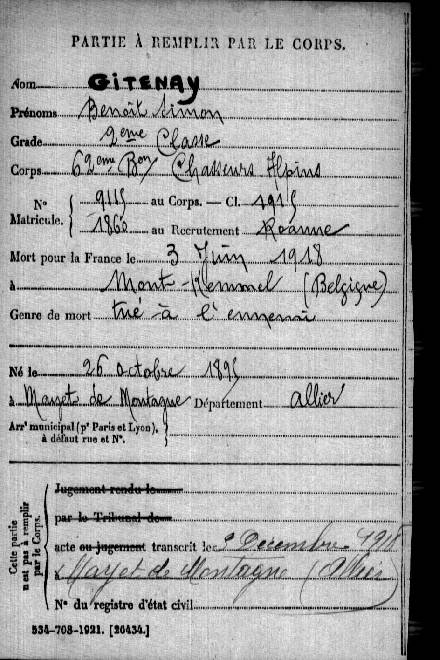 PARTIE À REMPLIR PAR LE CORPS.
Nom GITENAY
Prénoms Benoît Simon
Grade 2eme Classe
Corps 62eme Bon Chasseurs Alpins
N° Matricule. { 9115 au Corps. — Cl. 1915
1860 au Recrutement Roanne
Mort pour la France le 3 Juin 1918
à Mont-Kemmel (Belgique)
Genre de mort tué à l'ennemi
Né le 26 octobre 1895
à Mayet de Montagne Département Allier
Arrt municipal (pr Paris et Lyon), à défaut rue et N°. }
Cette partie n'est pas à remplir par le Corps.
Jugement rendu le
par le Tribunal de
acte ou jugement transcrit le Decembre 1918
à Mayet de Montagne (Allier)
N° du registre d'état civil
534-708-1921. [26434.]